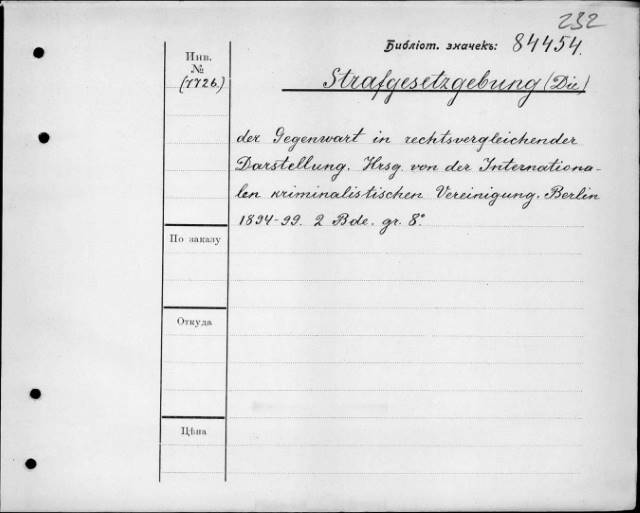 232
Библіот. значекъ: 84454.
Инв.
№
(7726.)
Strafgesetzgebung (Die)
der Gegenwart in rechtsvergleichender
Darstellung. Hrsg. von der Internationa-
len kriminalistischen Vereinigung. Berlin
1894-99. 2 Bde. gr. 8°
По заказу
Откуда
Цѣна